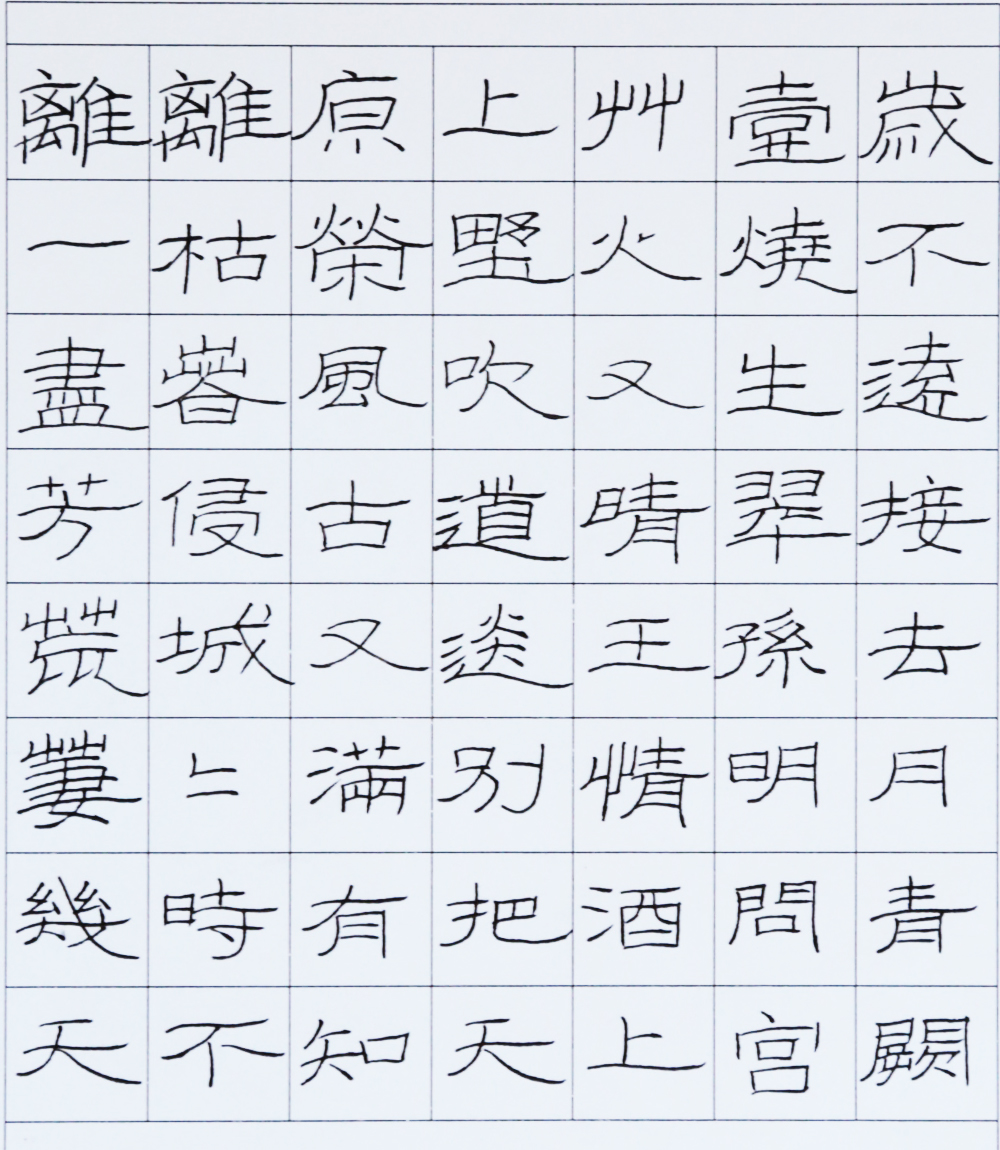 離離原上艸壹歲
一枯榮野火燒不
盡春風吹又生遠
芳侵古道晴翠接
荒城又送王孫去
萋〻滿別情明月
幾時有把酒問青
天不知天上宫闕